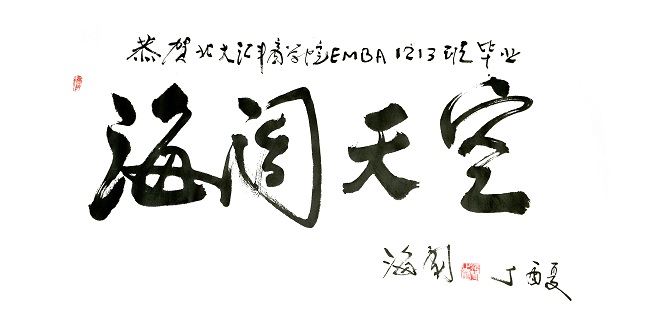 恭贺北大汇丰商学院EMBA1213班毕业
海阔天空
丁酉夏